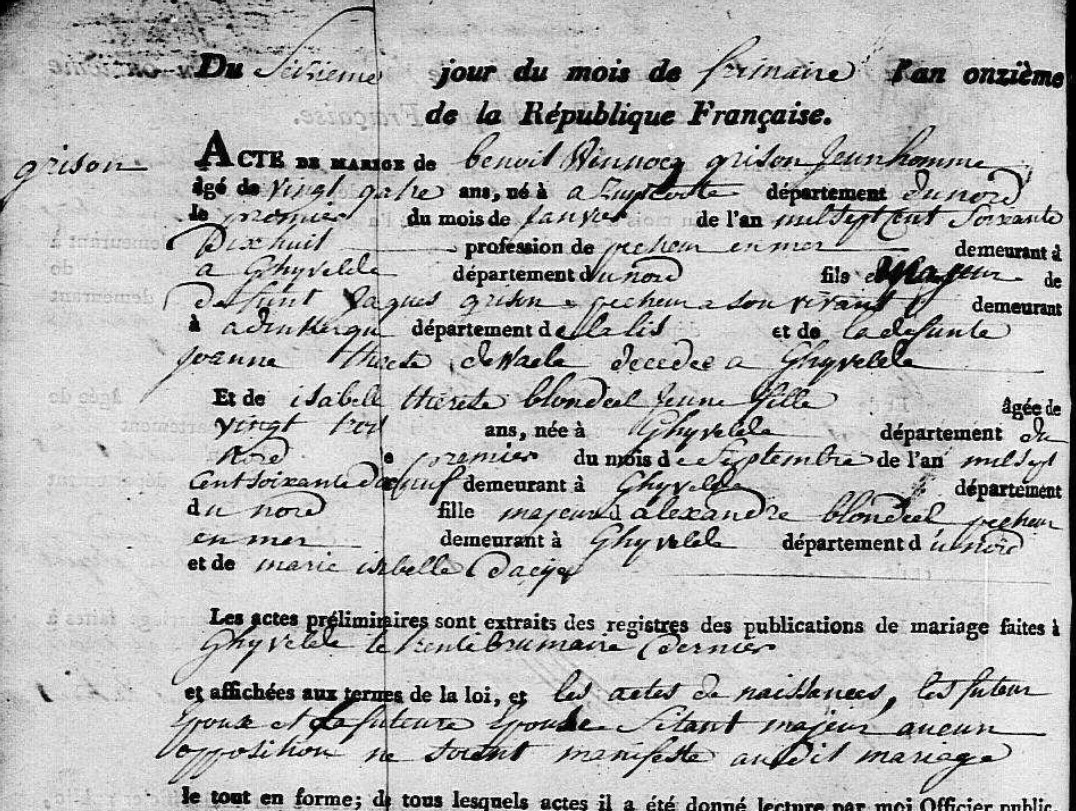 Du Sixieme jour du mois de frimaire l'an onzième
de la République Française.
grison
ACTE DE MARIGE de benoit Winnocq grison Jeunhomme
âgé de vingt qatre ans, né à a Zuytcoote département du nord
le premier du mois de Janvier de l'an mil Sept Cent Soixante
Dix huit profession de pecheur en mer demeurant à
a Ghyvelde département du nord fils Majeur de
defunt Jaques grison pecheur a son vivant demeurant
à adinkerque département de la lis et de la defunte
joanne therese deWaele decedee a Ghyvelde
Et de isabelle therese blondeel jeune fille âgée de
vingt trois ans, née à Ghyvelde département du
Nord premier du mois de Septembre de l'an mil sept
Cent Soixante demeurant à Ghyvelde département
du nord fille majeur d alexandre blondeel pecheur
en mer demeurant à Ghyvelde département du nord
et de marie isabelle
Les actes préliminaires sont extraits des registres des publications de mariage faites à
Ghyvelde le trente brumaire dernier
et affichées aux termes de la loi, et les actes de naissances, les futeur
Epoux et la futeure Epouse Etant majeur aucun
opposition ne soient manifeste audit mariage
le tout en forme; de tous lesquels actes il a été donné lecture par moi Officier public,